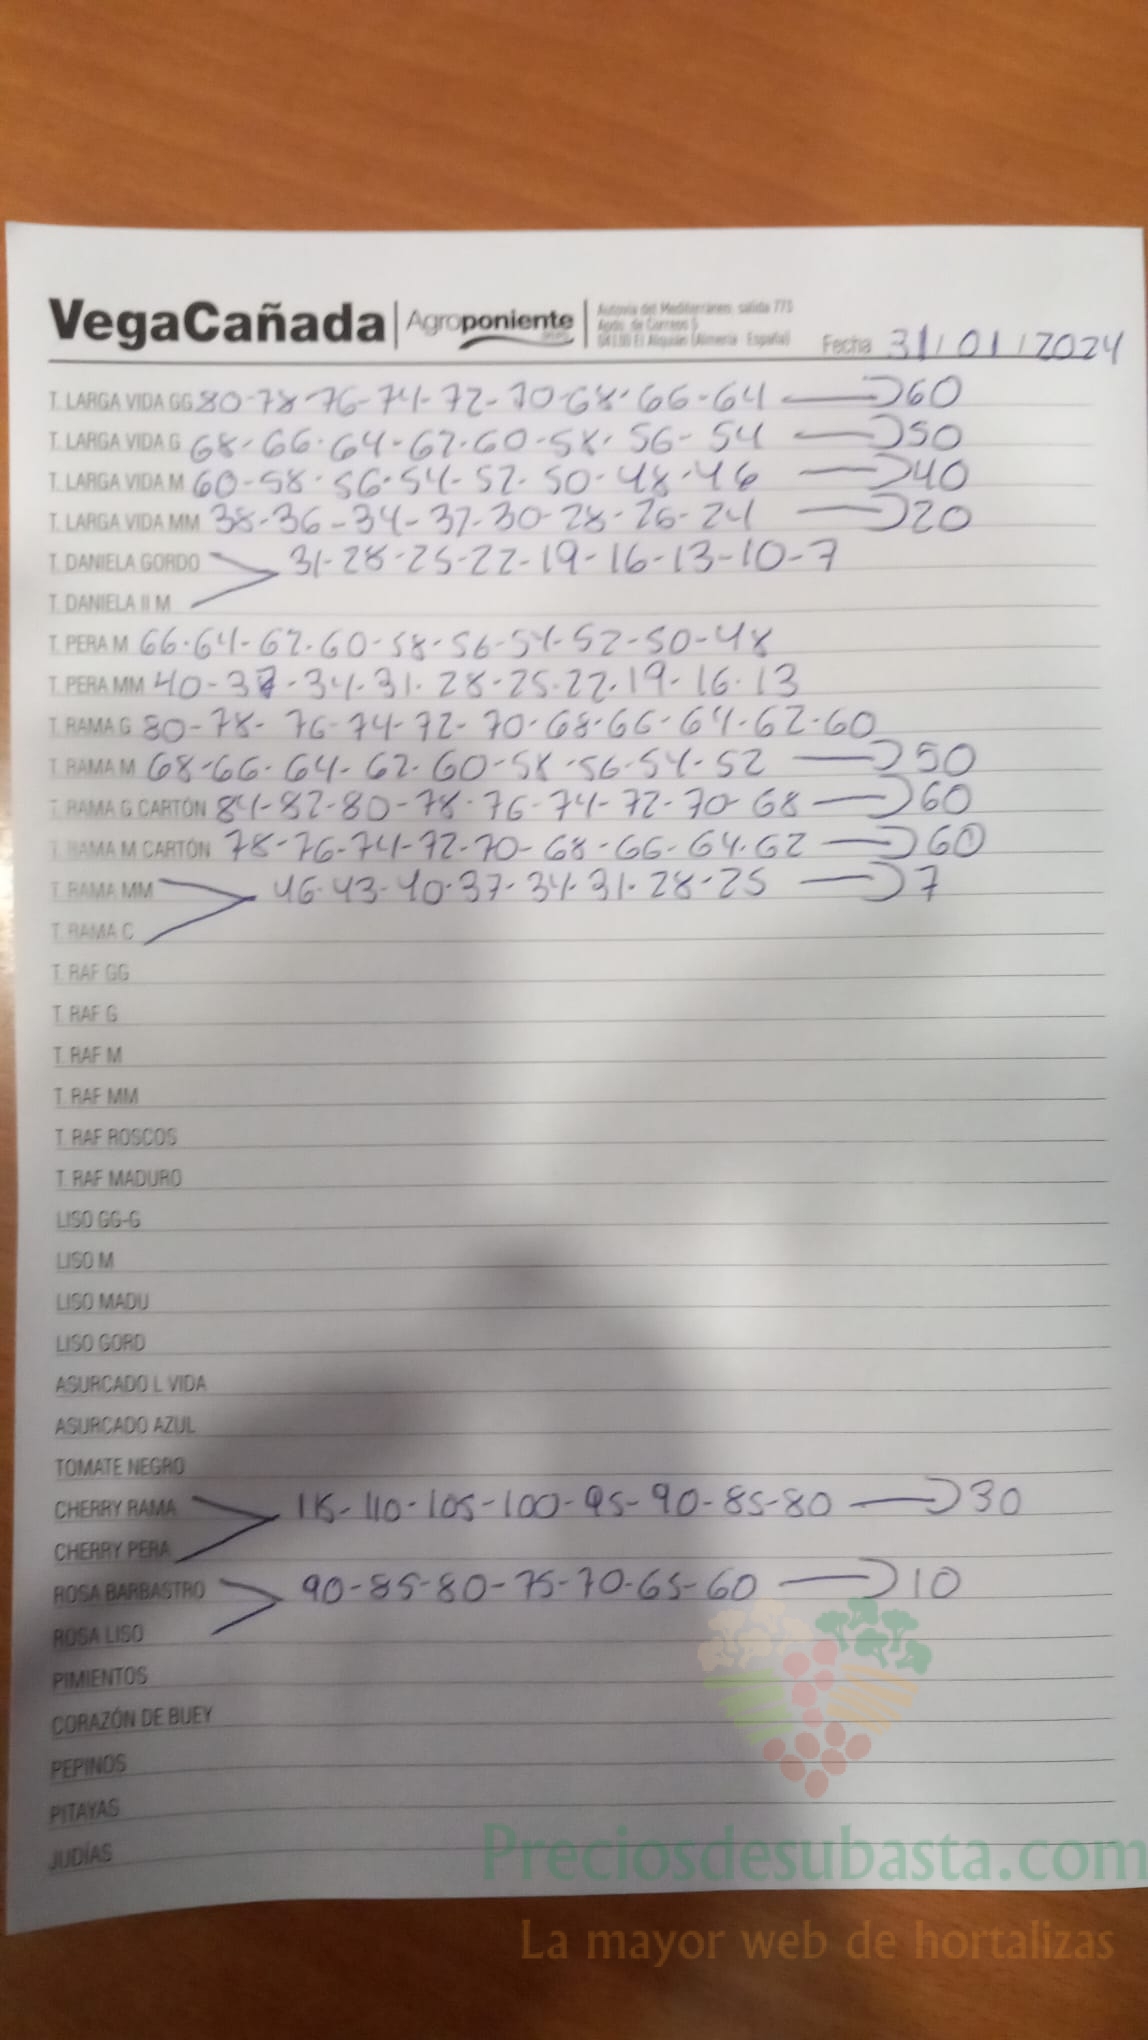 VegaCañada Agroponiente Autovía del Mediterráneo, salida 773
Apdo. de Correos 5
04130 El Alquián (Almería - España)
Fecha 31/01/2024
T. LARGA VIDA GG 80-78-76-74-72-70-68-66-64 → 60
T. LARGA VIDA G 68-66-64-62-60-58-56-54 → 50
T. LARGA VIDA M 60-58-56-54-52-50-48-46 → 40
T. LARGA VIDA MM 38-36-34-32-30-28-26-24 → 20
T. DANIELA GORDO 31-28-25-22-19-16-13-10-7
T. DANIELA II M
T. PERA M 66-64-62-60-58-56-54-52-50-48
T. PERA MM 40-37-34-31-28-25-22-19-16-13
T. RAMA G 80-78-76-74-72-70-68-66-64-62-60
T. RAMA M 68-66-64-62-60-58-56-54-52 → 50
T. RAMA G CARTÓN 84-82-80-78-76-74-72-70-68 → 60
T. RAMA M CARTÓN 78-76-74-72-70-68-66-64-62 → 60
T. RAMA MM 46-43-40-37-34-31-28-25 → 7
T. RAMA C
T. RAF GG
T. RAF G
T. RAF M
T. RAF MM
T. RAF ROSCOS
T. RAF MADURO
LISO GG-G
LISO M
LISO MADU
LISO GORD
ASURCADO L VIDA
ASURCADO AZUL
TOMATE NEGRO
CHERRY RAMA 115-110-105-100-95-90-85-80 → 30
CHERRY PERA
ROSA BARBASTRO 90-85-80-75-70-65-60 → 10
ROSA LISO
PIMIENTOS
CORAZÓN DE BUEY
PEPINOS
PITAYAS
JUDÍAS
Preciosdesubasta.com
La mayor web de hortalizas